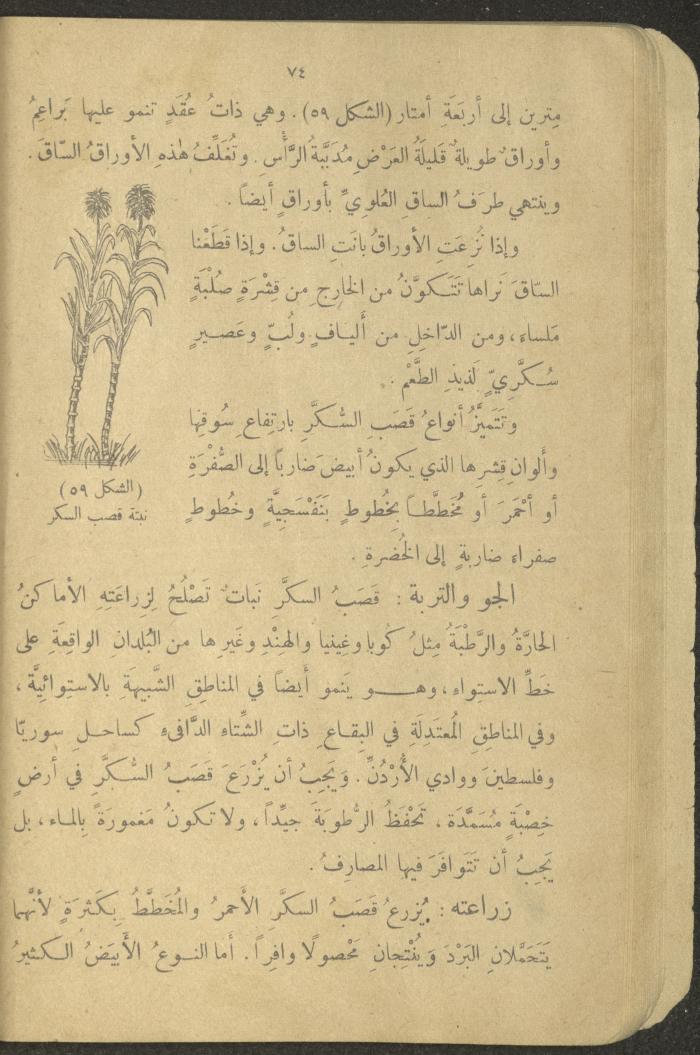 ٧٤
مِترين إلى أربَعَةِ أمتار (الشكل ٥٩). وهي ذاتُ عُقَدٍ تنمو عليها بَراعِمُ
وأوراقٌ طويلةٌ قَليلَةُ العَرْضِ مُدَبَّبَةُ الرَّأْسِ. وتُغَلِّفُ هٰذهِ الأوراقُ السّاقَ.
وينتهي طرَفُ الساقِ العُلويِّ بأوراقٍ أيضاً.
وإذا نُزِعَتِ الأوراقُ بانَتِ الساقُ. وإذا قَطَعْنا
السّاقَ نَراها تَتَكوَّنُ من الخارِجِ مِن قِشْرَةٍ صُلْبَةٍ
مَلساء، ومن الدّاخِلِ من أليافٍ ولُبٍّ وعَصيرٍ
سُكَّرِيٍّ لَذيذِ الطَّعْمِ.
وتَتَميَّزُ أنواعُ قَصَبِ السُّكَّرِ بارتِفاعِ سُوقِها
وألوانِ قِشرِها الذي يكونُ أبيضَ ضارباً إلى الصُّفْرَةِ
أو أحْمَرَ أو مُخَطَّطاً بخُطوطٍ بَنَفْسَجِيَّةٍ وخُطوطٍ
صفراء ضاربةٍ إلى الخُضرةِ.
(الشكل ٥٩)
نبتة قصب السكر
الجو والتربة : قَصَبُ السكَّرِ نَباتٌ تَصْلُحُ لِزِراعَتِهِ الأماكنُ
الحارَّةُ والرَّطْبَةُ مِثلُ كُوبا وغِينيا والهنْدِ وغَيرِها من البُلدانِ الواقِعَةِ على
خَطِّ الاستِواءِ، وهو يَنمو أيضاً في المناطِقِ الشَّبيهَةِ بالاستِوائِيَّة،
وفي المناطِقِ المُعتَدِلَةِ في البِقاعِ ذاتِ الشِّتاءِ الدَّافيءِ كساحل سوريّا
وفلسطينَ ووادي الأُرْدُنِّ. وَيَجِبُ أن يُزْرَعَ قَصَبُ السُّكَّرِ في أرضٍ
خِصْبَةٍ مُسَمَّدَة، تَحْفَظُ الرُّطوبَةَ جيِّداً، ولا تكونُ مَغمورَةً بالماء، بل
يَجِبُ أن تَتَوافَرَ فيها المصارِفُ.
زراعته : يُزرعُ قَصَبُ السكَّرِ الأحمرُ والمُخَطَّطُ بِكَثرَةٍ لأنَّهما
يَتَحَمَّلانِ البَرْدَ وَيُنْتِجانِ مَحْصولًا وافِراً. أما النوعُ الأبيَضُ الكثيرُ